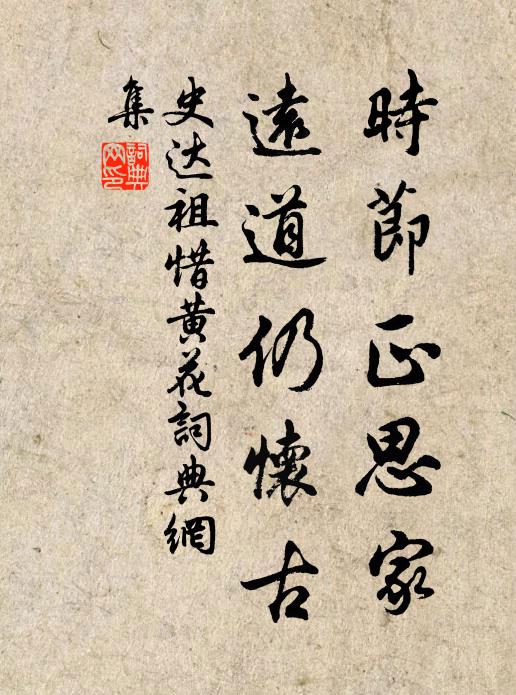 時節正思家
遠道仍懷古
史达祖惜黄花詞典網
集
詞典網印